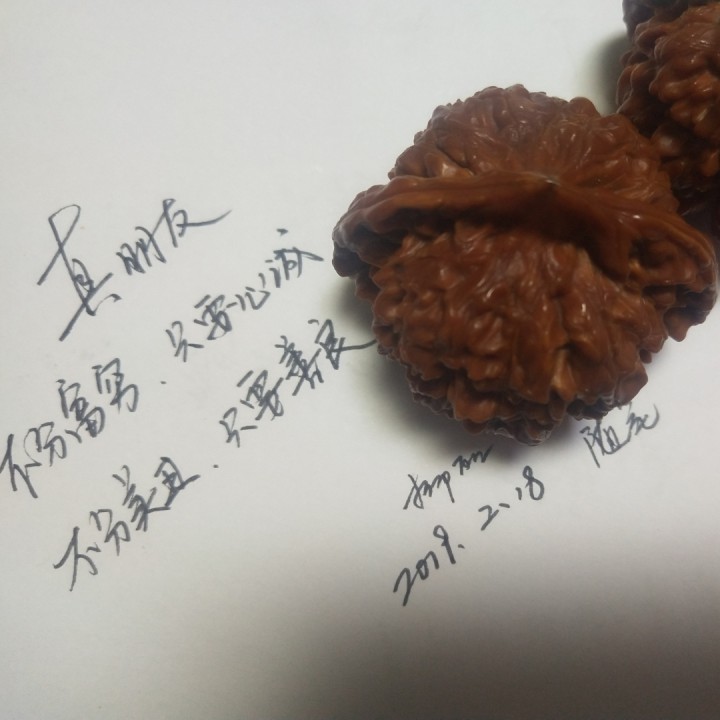 真朋友
不分富穷.只要心诚
不分美丑.只要善良
随记
2019.2.18